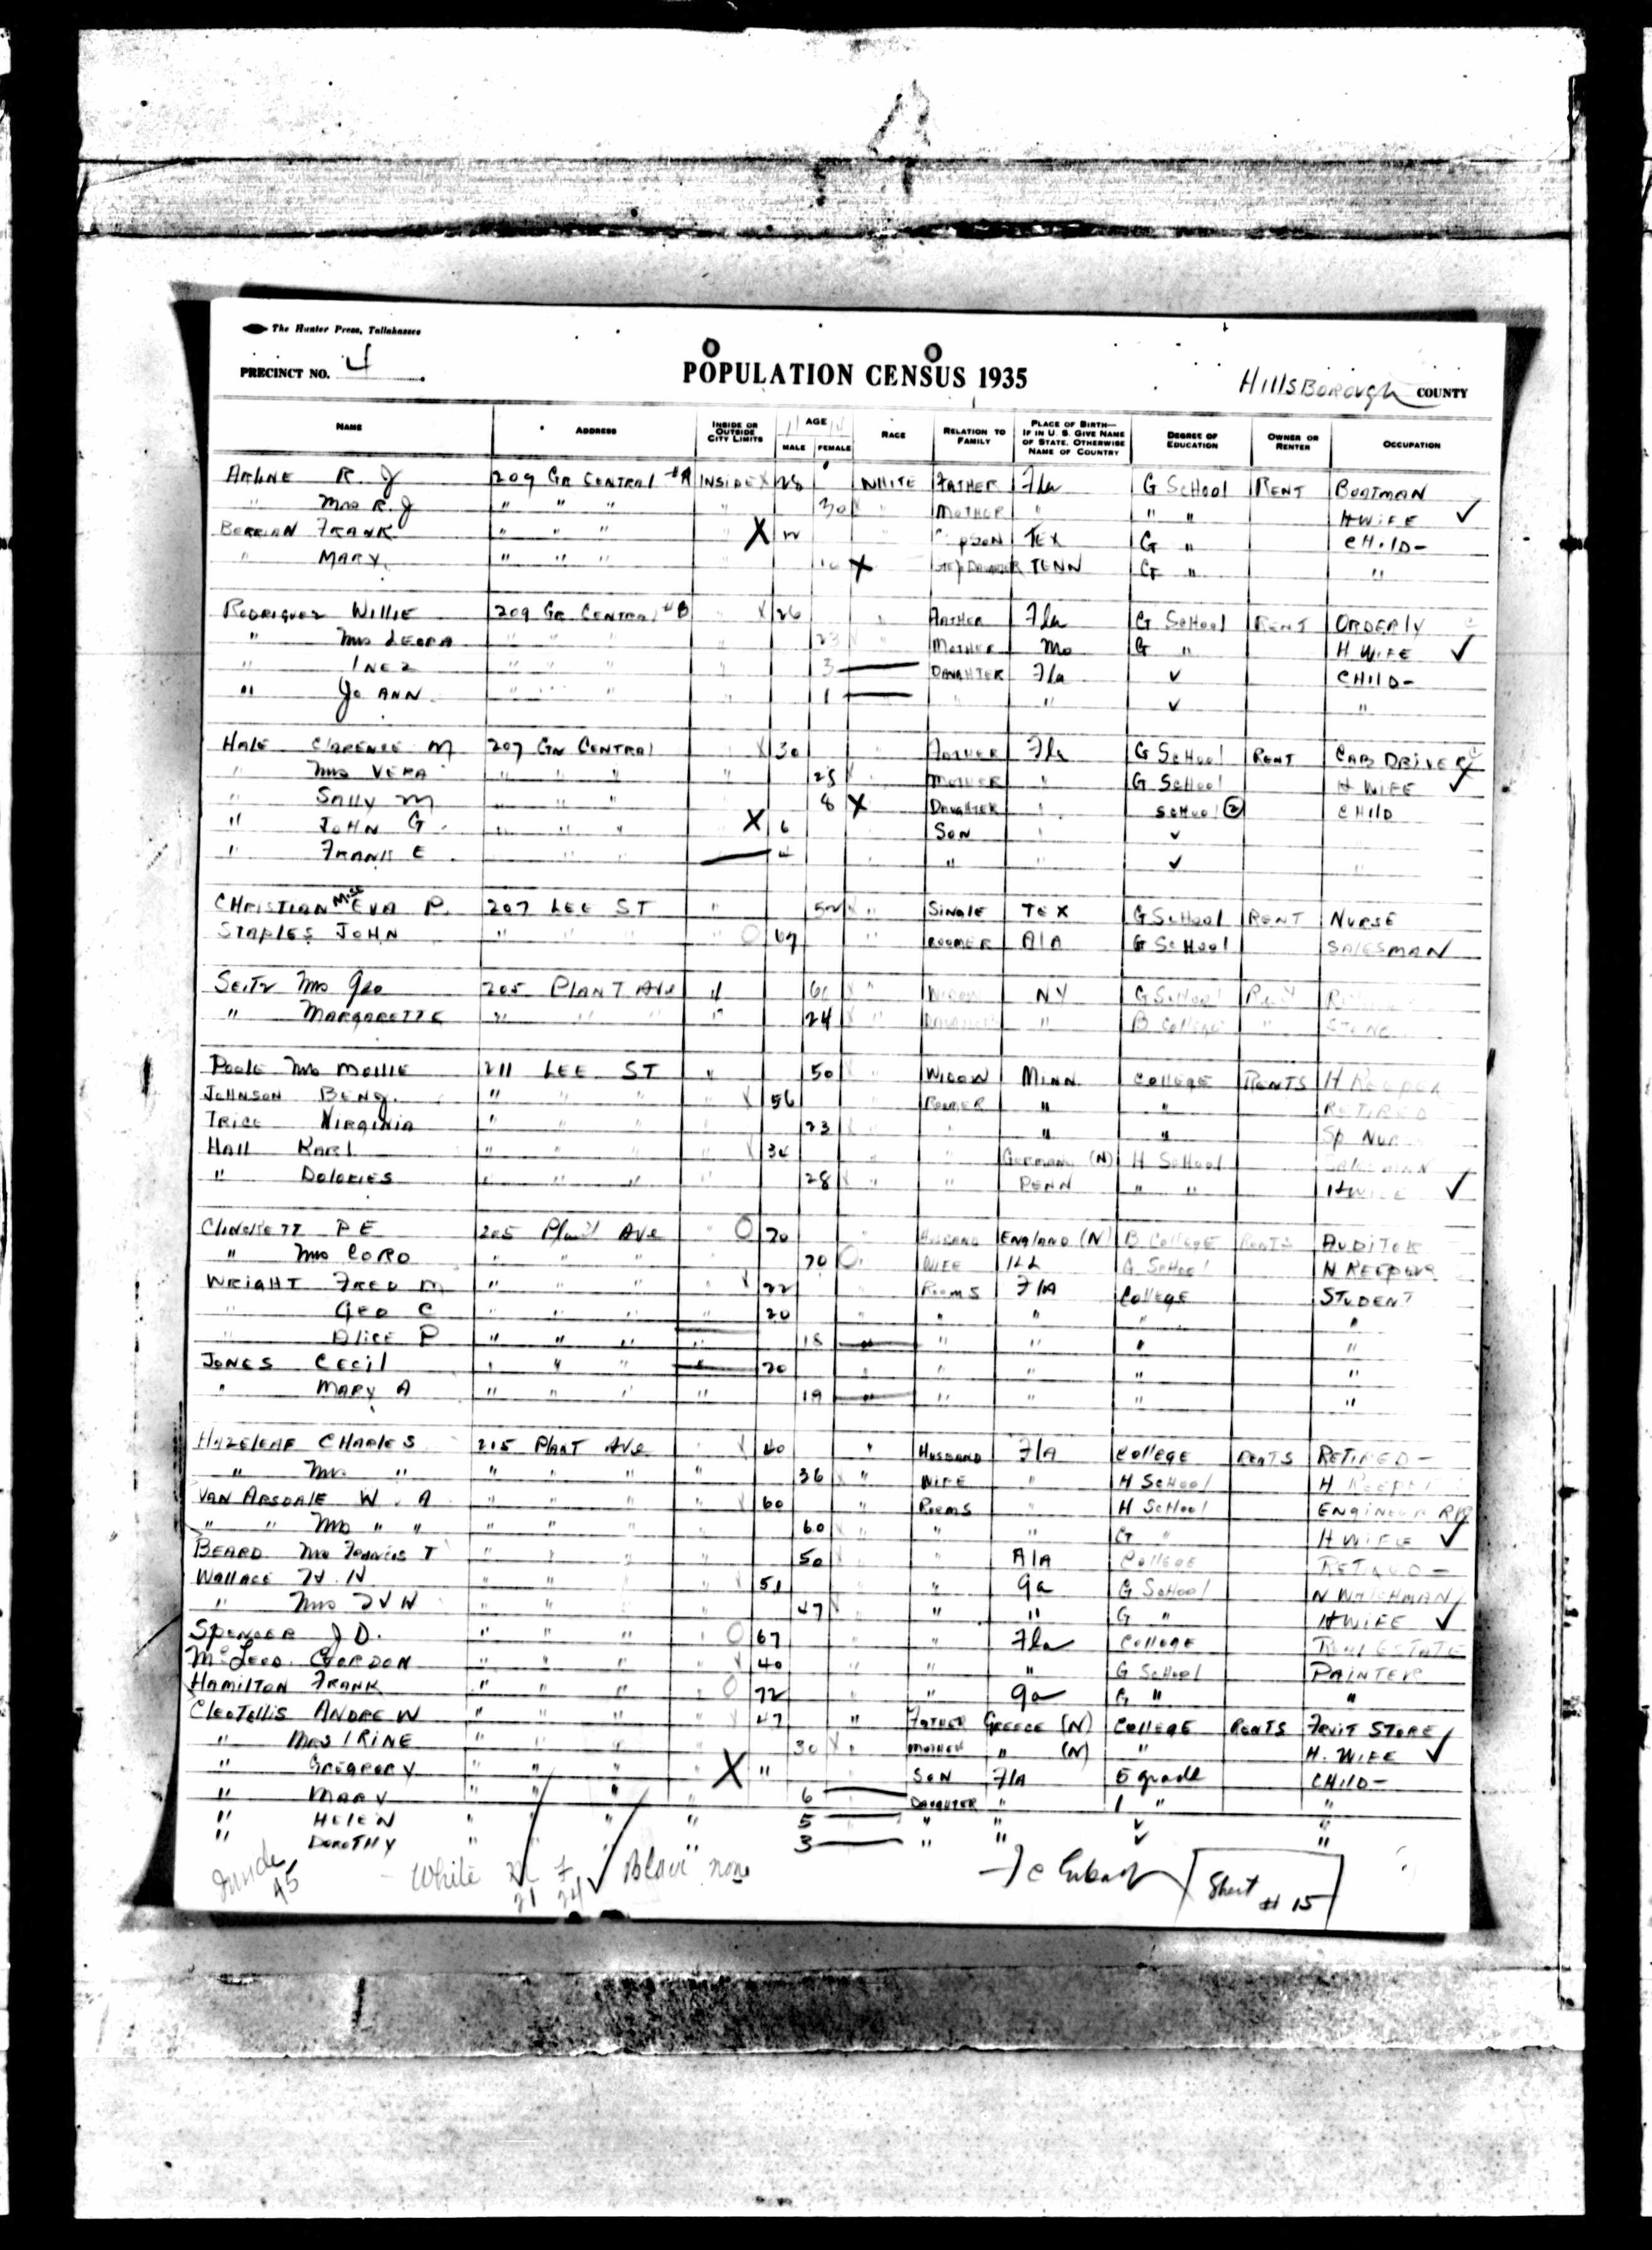 The Hunter Press, Tallahassee
PRECINCT NO. 4 POPULATION CENSUS 1935 HillsBorough COUNTY
NAME ADDRESS INSIDE OR OUTSIDE CITY LIMITS AGE MALE FEMALE RACE RELATION TO FAMILY PLACE OF BIRTH— IF IN U. S. GIVE NAME OF STATE. OTHERWISE NAME OF COUNTRY DEGREE OF EDUCATION OWNER OR RENTER OCCUPATION
ARLINE R. J 209 GR CENTRAL #A INSIDE X 28 WHITE FATHER Fla G SCHOOL RENT BOATMAN
" Mrs R. J " " " " 30 " MOTHER " " " HWIFE ✓
BERRIAN FRANK " " " X 12 SON TEX G " CHILD-
" MARY " " " X Step DAUGHTER TENN G " "
RODRIGUEZ WILLIE 209 GR CENTRAL #B " X 26 " FATHER Fla G SCHOOL RENT ORDERLY
" Mrs LEORA " " " 23 " MOTHER Mo G " H WIFE ✓
" INEZ " " " " 3 — DAUGHTER Fla ✓ CHILD-
" Jo ANN " " " " 1 — " " ✓ "
HALE CLARENCE M 207 GR CENTRAL X 30 " FATHER Fla G SCHOOL RENT CAB DRIVER
" Mrs VERA " " " " 25 MOTHER " G SCHOOL H WIFE ✓
" SALLY M " " " 8 X DAUGHTER " SCHOOL (2) CHILD
" JOHN G. " " " X 6 SON " ✓
" FRANK E. " " " — 4 " " " ✓ "
CHRISTIAN Miss EVA P. 207 LEE ST " 52 " SINGLE TEX G SCHOOL RENT NURSE
STAPLES JOHN " " " " O 67 " ROOMER ALA G SCHOOL SALESMAN
SEITZ Mrs Geo 205 PLANT AVE " " WIDOW NY G SCHOOL Rent
" MARGARETTE " " " " 24 " DAUGHTER " B College "
POOLE Mrs MOLLIE 211 LEE ST " 50 WIDOW MINN. COLLEGE RENTS H KEEPER
JOHNSON BENJ. " " " X 56 ROOMER " " RETIRED
TRICE VIRGINIA " " " " 23 " " "
HALL KARL " " " " X 34 " " GERMANY (N) H SCHOOL SALESMAN
" DOLORIES " " " " 28 " " PENN " " HWIFE ✓
CLINCKETT P E 205 Plant AVE " O 70 " HUSBAND ENGLAND (N) B COLLEGE RENTS AUDITOR
" Mrs CORO " " " " 70 O WIFE ILL G SCHOOL H KEEPER
WRIGHT FRED M " " " " X 22 " ROOMS FLA COLLEGE STUDENT
" GEO C " " " " 20 " " " " "
" ALICE P " " " " 18 " " " " "
JONES CECIL " " " " 20 " " " " "
" MARY A " " " " 19 " " " " "
HAZELEAF CHARLES 215 PLANT AVE " X 40 " HUSBAND FLA COLLEGE RENTS RETIRED -
" Mrs " " " " " 36 " WIFE " H SCHOOL H KEEPER
VAN ARSDALE W. A " " " " X 60 " ROOMS " H SCHOOL ENGINEER RR
" " Mrs " " " " " " 60 " " " G " H WIFE ✓
BEARD Mrs Francis T " " " " 50 " " ALA COLLEGE RETIRED -
WALLACE W. H " " " " X 51 " Ga G SCHOOL N WATCHMAN
" Mrs W H " " " " 47 " " " G " HWIFE ✓
SPENCER J D. " " " " O 67 " " Fla COLLEGE REAL ESTATE
McLEOD. GORDON " " " " X 40 " " " G SCHOOL PAINTER
HAMILTON FRANK " " " " O 72 " " Ga G " "
CLEOTELLIS ANDREW " " " " X 47 " FATHER GREECE (N) COLLEGE RENTS FRUIT STORE
" Mrs IRINE " " " " 30 X MOTHER " (N) " H. WIFE ✓
" GREGPORY " " " " X 11 SON FLA 5 grade CHILD-
" MARY " " " " 6 — DAUGHTER " 1 " "
" HELEN " " " " 5 — " " ✓ "
" DOROTHY " " " " 3 — " " ✓ "
Inside 45 - White M 21 F 24 ✓ Black none Sheet # 15